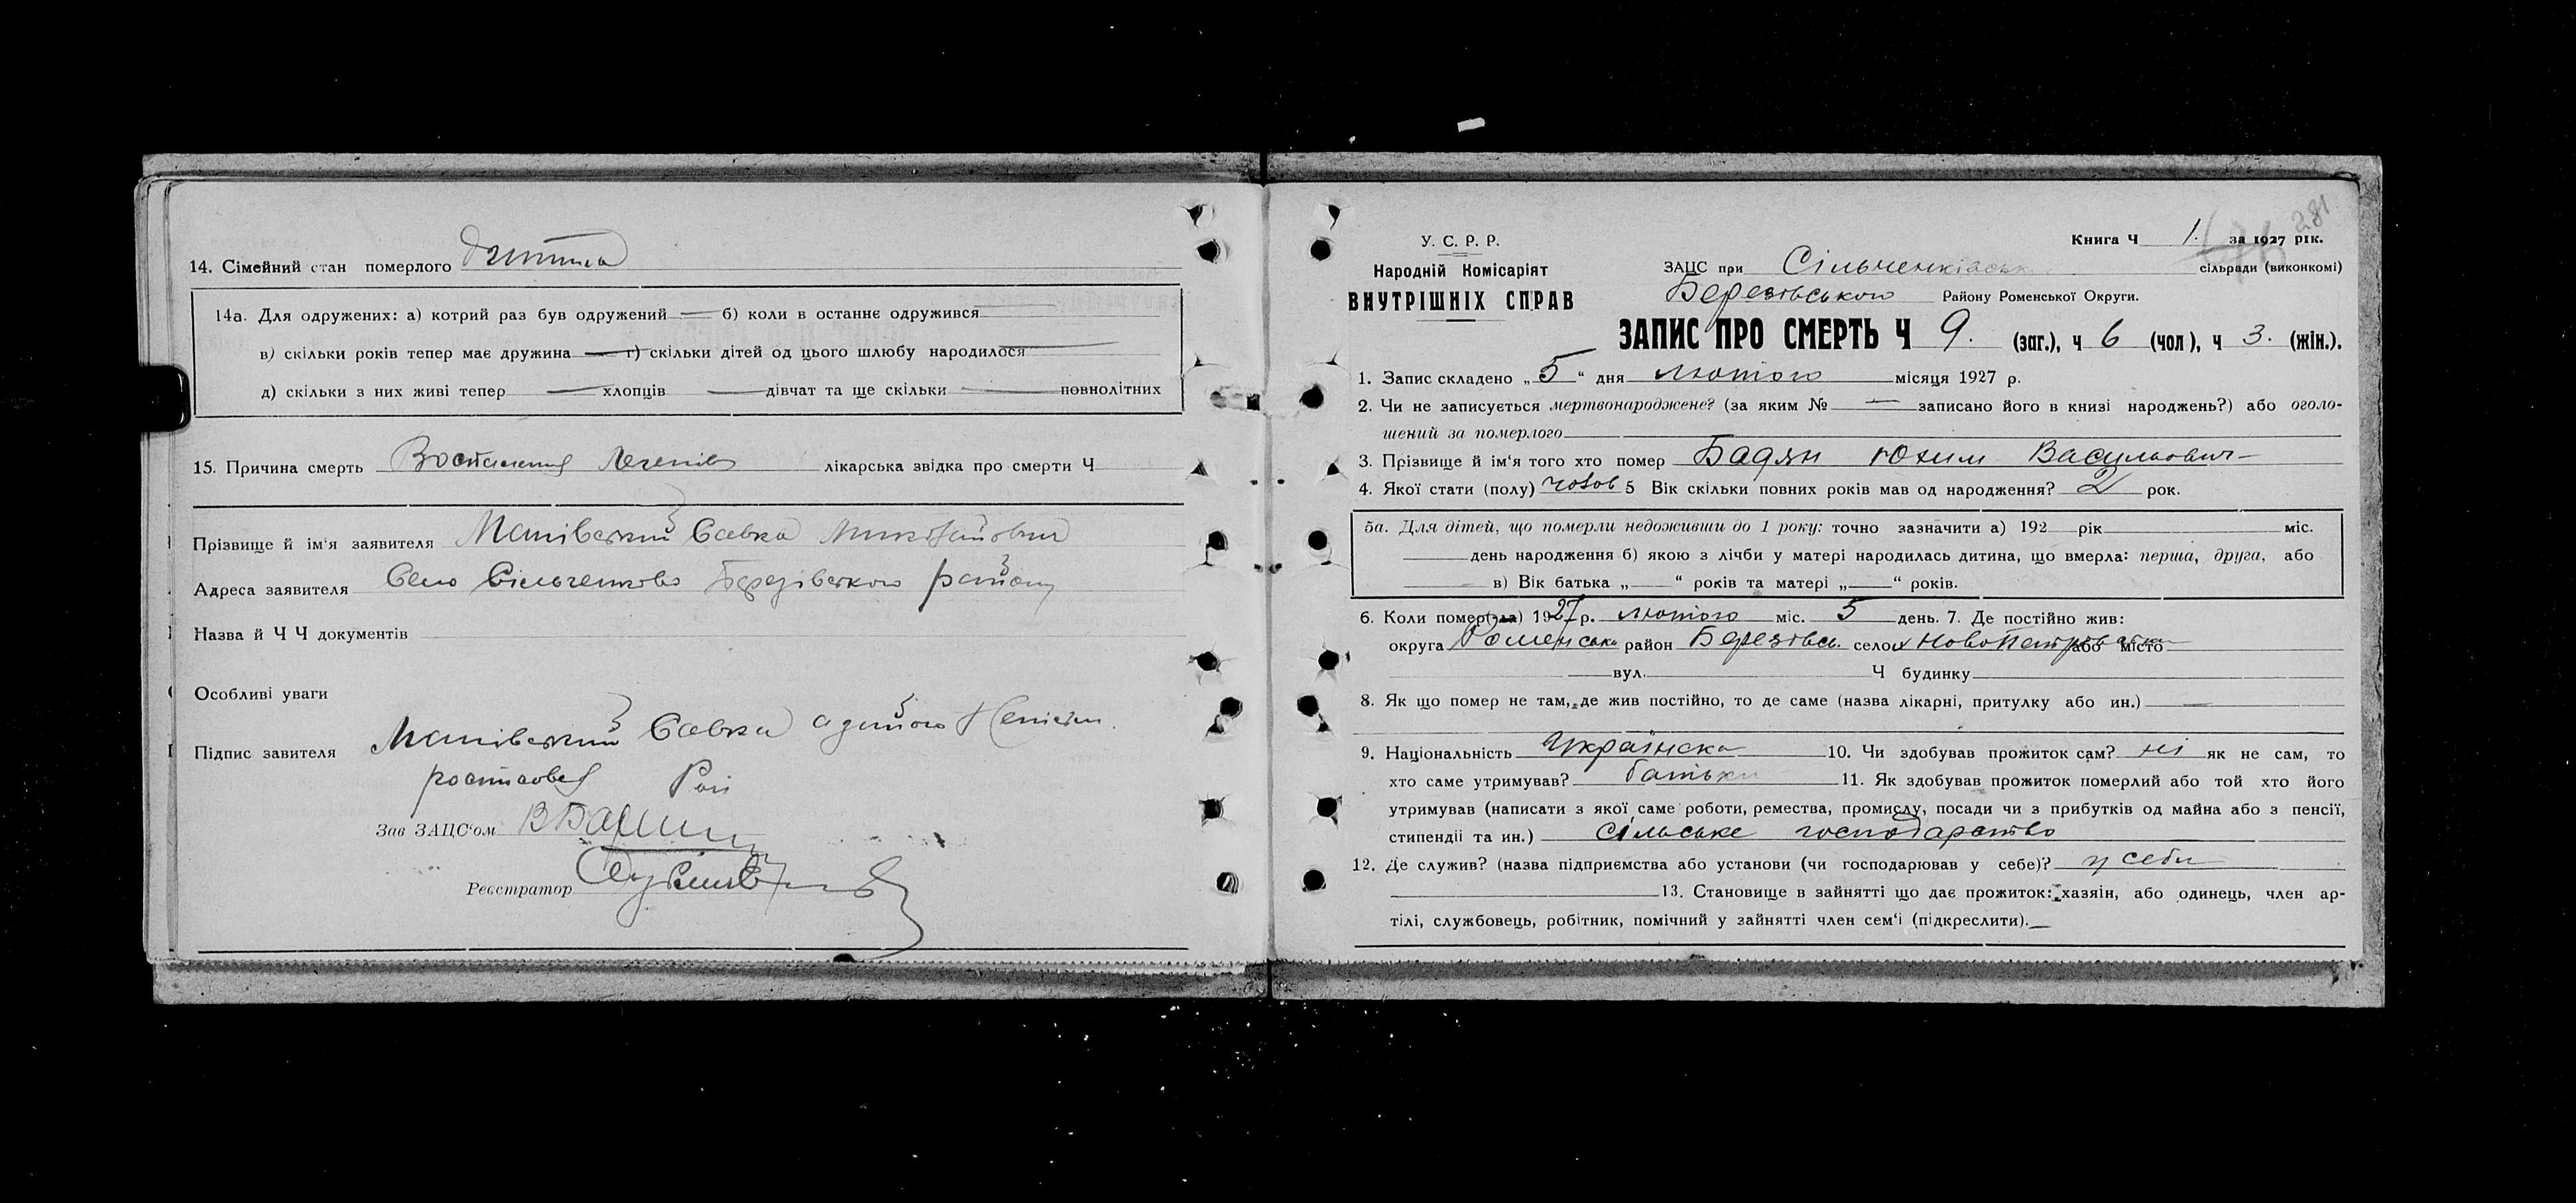 14. Сімейний стан померлого дитина
14а. Для одружених: а) котрий раз був одружений — б) коли в останнє одружився
в) скільки років тепер має дружина — г) скільки дітей од цього шлюбу народилося —
д) скільки з них живі тепер — хлопців — дівчат та ще скільки — повнолітних
15. Причина смерть Воспаления легенів лікарська звідка про смерти Ч
Прізвище й ім'я заявителя Маківський Савка Миколайович
Адреса заявителя Село Сільченково Березівського району
Назва й Ч Ч документів
Особливі уваги
Підпис завителя Маківський Савка а за його
Зав ЗАЦС'ом
Реєстратор
281
У. С. Р. Р.
Народній Комісаріят
ВНУТРІШНІХ СПРАВ
Книга Ч 1. за 1927 рік.
ЗАЦС при Сільченківськ сільради (виконкомі)
Березівського Району Роменської Округи.
ЗАПИС ПРО СМЕРТЬ Ч 9. (заг.), ч 6 (чол), ч 3. (жін.).
1. Запис складено „5“ дня лютого місяця 1927 р.
2. Чи не записується мертвонароджене? (за яким № — записано його в книзі народжень?) або оголо-
шений за померлого
3. Прізвище й ім'я того хто помер Бадян Юхим Васильович
4. Якої стати (полу) чолов 5 Вік скільки повних років мав од народження? 2 рок.
5а. Для дітей, що померли недоживши до 1 року: точно зазначити а) 192 рік міс.
день народження б) якою з лічби у матері народилась дитина, що вмерла: перша, друга, або
в) Вік батька „—“ років та матері „—“ років.
6. Коли помер(ла) 1927 р. лютого міс. 5 день. 7. Де постійно жив:
округа Роменська район Березівсь. село х НовоПетровка або місто
вул. Ч будинку
8. Як що помер не там, де жив постійно, то де саме (назва лікарні, притулку або ин.) —
9. Національність Українска 10. Чи здобував прожиток сам? ні як не сам, то
хто саме утримував? батьки 11. Як здобував прожиток померлий або той хто його
утримував (написати з якої саме роботи, ремества, промислу, посади чи з прибутків од майна або з пенсії,
стипендії та ин.) Сільське господарство
12. Де служив? (назва підприємства або установи (чи господарював у себе)? у себи
13. Становище в зайнятті що дає прожиток: хазяін, або одинець, член ар-
тілі, службовець, робітник, помічний у зайнятті член сем'ї (підкреслити).